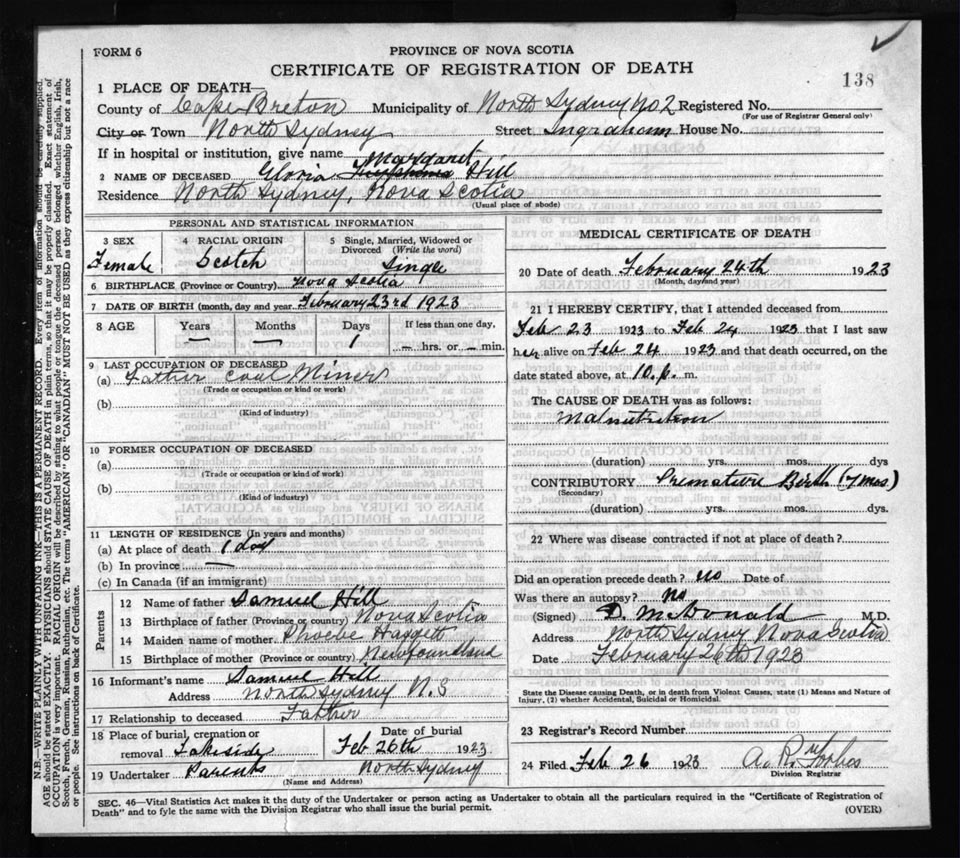 FORM 6
PROVINCE OF NOVA SCOTIA
CERTIFICATE OF REGISTRATION OF DEATH
138
1 PLACE OF DEATH
County of Cape Breton Municipality of North Sydney No 2 Registered No.
(For use of Registrar General only)
City or Town North Sydney Street Ingraham House No.
If in hospital or institution, give name
Margaret
2 NAME OF DECEASED Gloria Hill
Residence North Sydney, Nova Scotia
(Usual place of abode)
PERSONAL AND STATISTICAL INFORMATION
3 SEX 4 RACIAL ORIGIN 5 Single, Married, Widowed or Divorced (Write the word)
Female Scotch Single
6 BIRTHPLACE (Province or Country) Nova Scotia
7 DATE OF BIRTH (month, day and year) February 23rd 1923
8 AGE Years Months Days If less than one day,
— — 1 — hrs. or — min.
9 LAST OCCUPATION OF DECEASED
(a) Father Coal Miner
(Trade or occupation or kind or work)
(b)
(Kind of industry)
10 FORMER OCCUPATION OF DECEASED
(a)
(Trade or occupation or kind of work)
(b)
(Kind of industry)
11 LENGTH OF RESIDENCE (In years and months)
(a) At place of death 1 day
(b) In province —
(c) In Canada (if an immigrant)
Parents
12 Name of father Samuel Hill
13 Birthplace of father (Province or country) Nova Scotia
14 Maiden name of mother Phoebe Haggett
15 Birthplace of mother (Province or country) Newfoundland
16 Informant's name Samuel Hill
Address North Sydney N.S
17 Relationship to deceased Father
18 Place of burial, cremation or removal Lakeside
Date of burial
Feb 26th 1923
19 Undertaker Parents North Sydney
(Name and Address)
MEDICAL CERTIFICATE OF DEATH
20 Date of death February 24th 1923
(Month, day and year)
21 I HEREBY CERTIFY, that I attended deceased from
Feb 23 1923 to Feb 24 1923 that I last saw
her alive on Feb 24 1923 and that death occurred, on the
date stated above, at 10. p. m.
The CAUSE OF DEATH was as follows:
Malnutrition
(duration) yrs. mos. dys
CONTRIBUTORY Premature Birth (7 mos.)
(Secondary)
(duration) yrs. mos. dys.
22 Where was disease contracted if not at place of death?
Did an operation precede death? no Date of
Was there an autopsy? No
(Signed) D. McDonald M.D.
Address North Sydney Nova Scotia
Date February 26th 1923
State the Disease causing Death, or in death from Violent Causes, state (1) Means and Nature of
Injury, (2) whether Accidental, Suicidal or Homicidal.
23 Registrar's Record Number
24 Filed Feb 26 1923
Division Registrar
SEC. 46—Vital Statistics Act makes it the duty of the Undertaker or person acting as Undertaker to obtain all the particulars required in the "Certificate of Registration of
Death" and to fyle the same with the Division Registrar who shall issue the burial permit.
(OVER)
N.B.—WRITE PLAINLY WITH UNFADING INK—THIS IS A PERMANENT RECORD. Every item of information should be carefully supplied.
AGE should be stated EXACTLY. PHYSICIANS should STATE CAUSE OF DEATH in plain terms, so that it may be properly classified. Exact statement of
OCCUPATION is very important. RACIAL ORIGIN will be described by stating to what people or tongue the deceased person belonged, whether English, Irish,
Scotch, French, German, Russian, Ruthenian, etc. The terms "AMERICAN" OR "CANADIAN" MUST NOT BE USED as they express citizenship but not a race
or people. See instructions on back of Certificate.